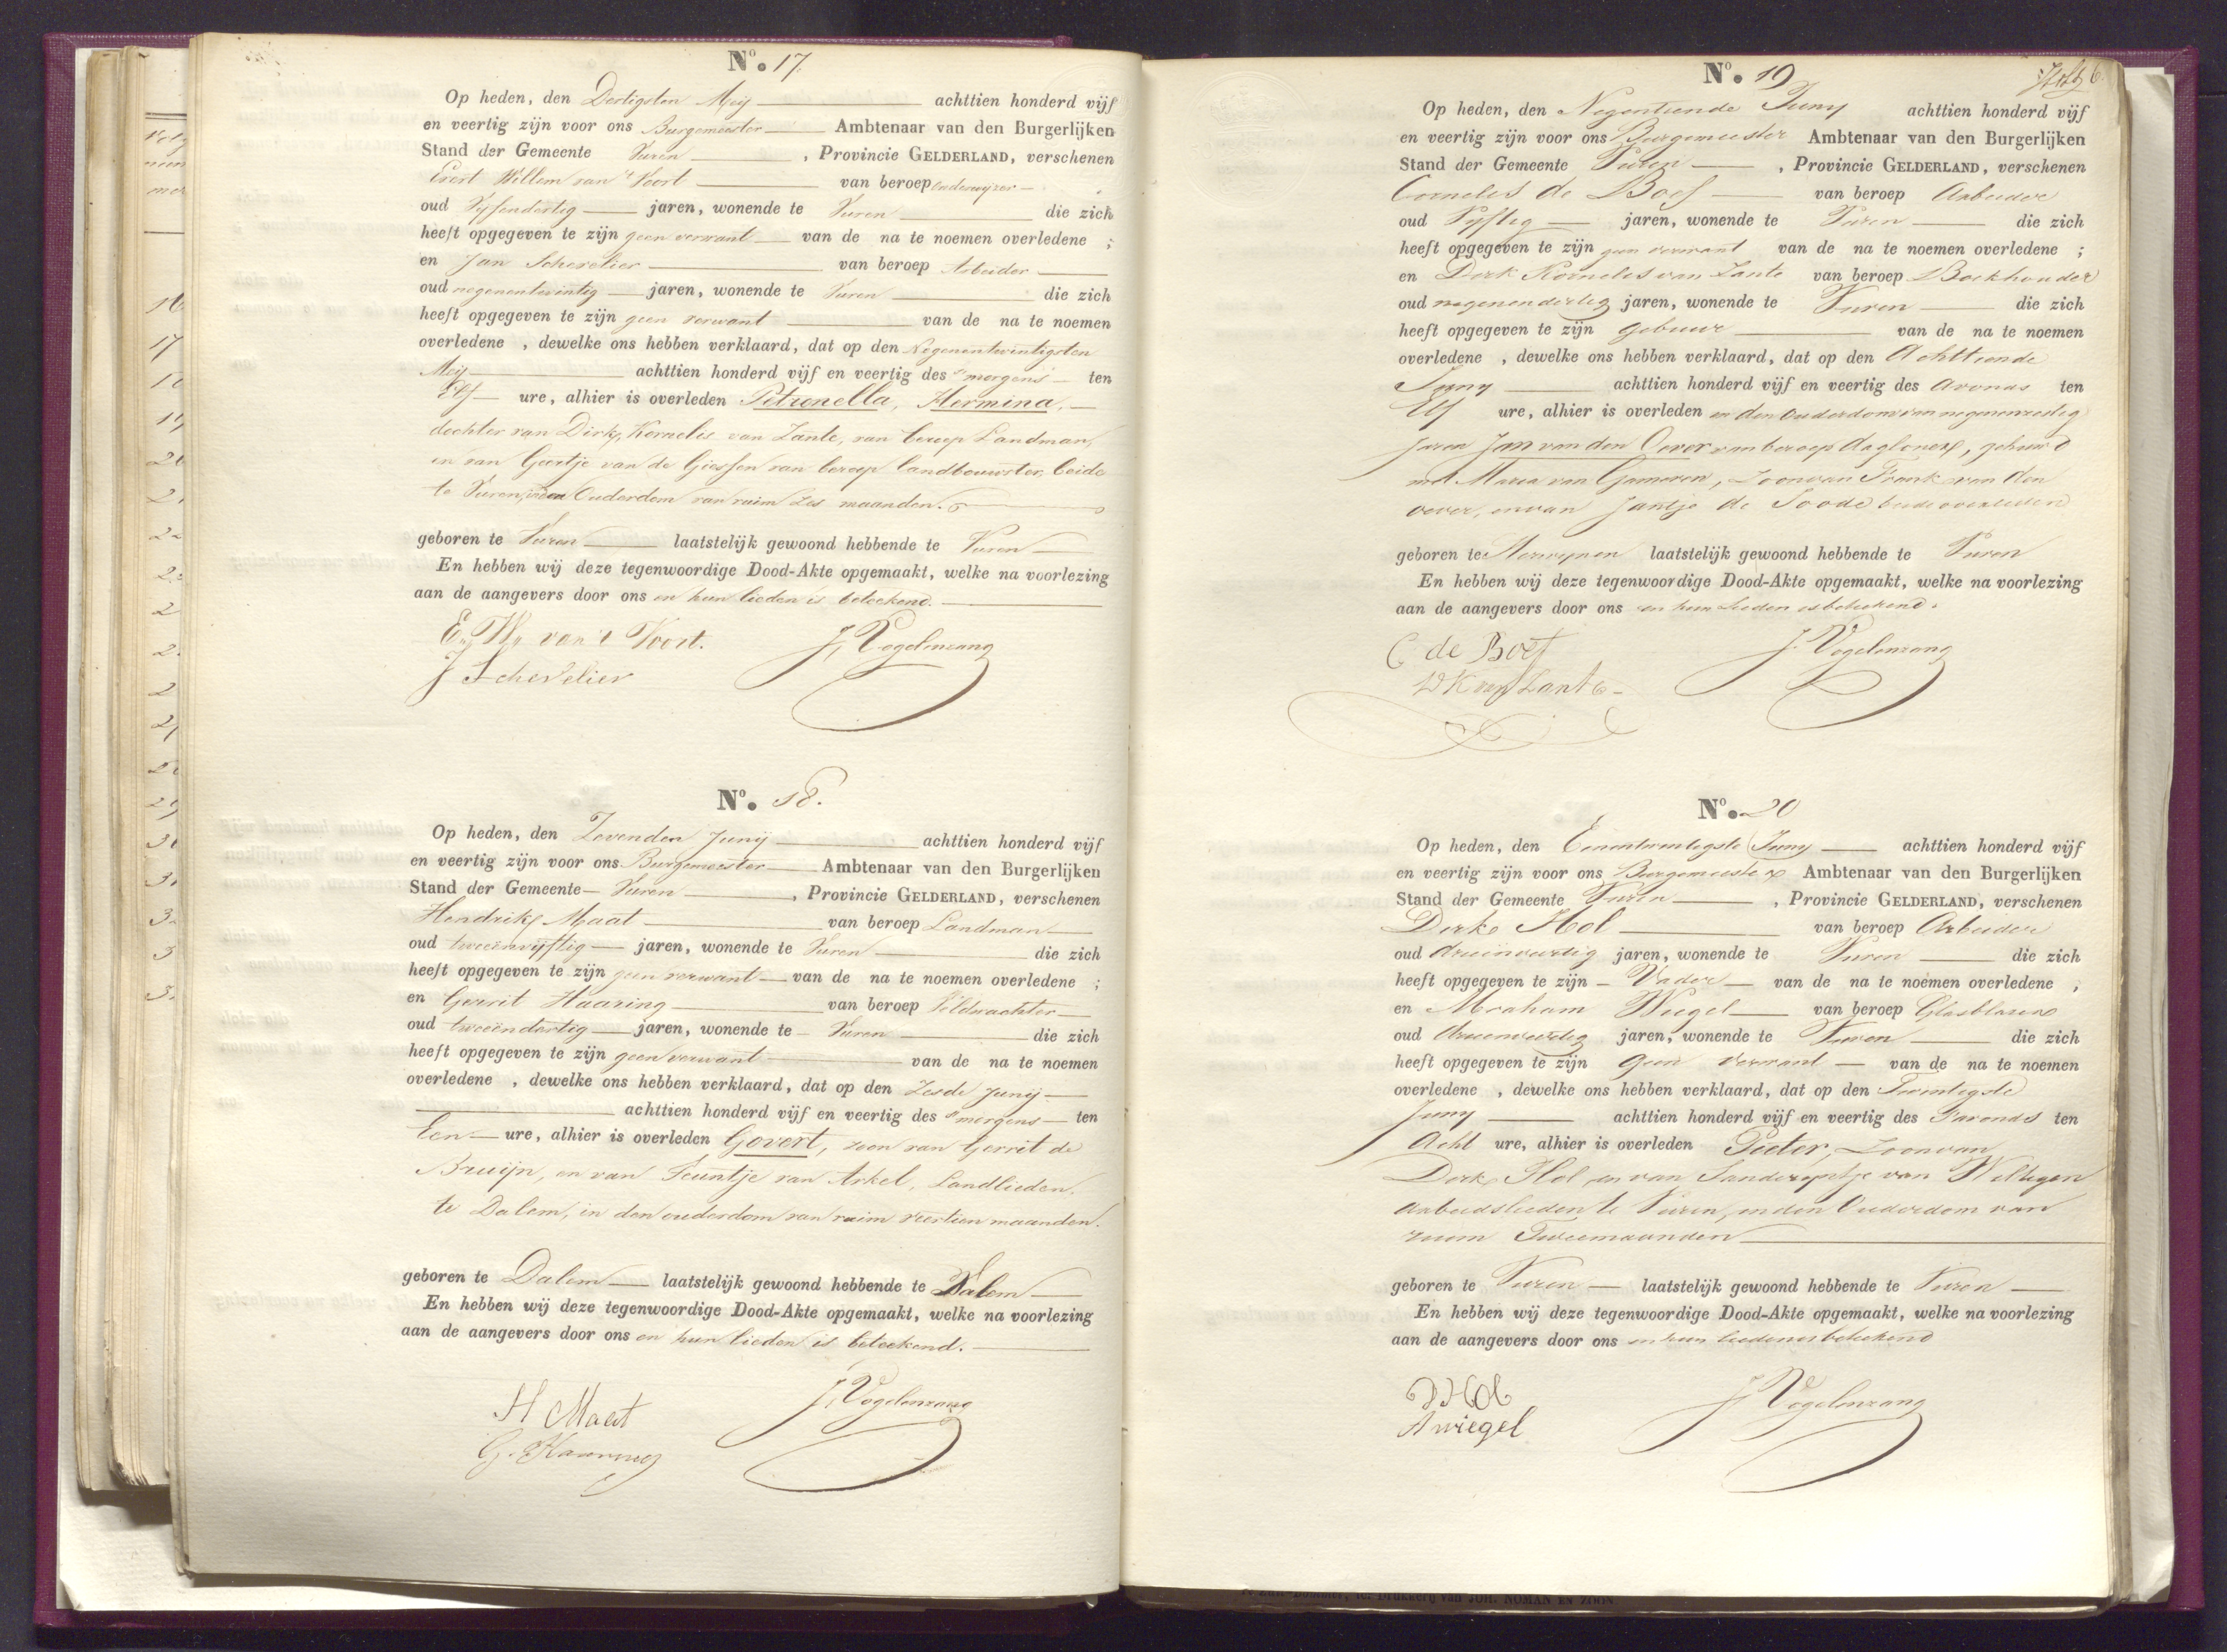 No. 17
Op heden, den Dertigsten Meij achttien honderd vijf
en veertig zijn voor ons Burgemeester Ambtenaar van den Burgerlijken
Stand der Gemeente Vuren, Provincie GELDERLAND, verschenen
Evert Willem van 't Voort van beroep onderwijzer
oud Vijfendertig jaren, wonende te Vuren die zich
heeft opgegeven te zijn geen verwant van de na te noemen overledene ;
en Jan Schevelier van beroep Arbeider
oud negenentwintig jaren, wonende te Vuren die zich
heeft opgegeven te zijn geen verwant van de na te noemen
overledene , dewelke ons hebben verklaard, dat op den Negenentwintigsten
Meij achttien honderd vijf en veertig des 's morgens ten
Elf ure, alhier is overleden Petronella, Hermina,
dochter van Dirk, Kornelis van Zante, van beroep Landman,
en van Geertje van de Giessen van beroep landbouwster, beide
te Vuren, in den Ouderdom van ruim Zes maanden.
geboren te Vuren laatstelijk gewoond hebbende te Vuren
En hebben wij deze tegenwoordige Dood-Akte opgemaakt, welke na voorlezing
aan de aangevers door ons en hun lieden is beteekend.
E. W. van 't Voort. J. Vogelenzang
J Schevelier
No. 18.
Op heden, den Zevenden Junij achttien honderd vijf
en veertig zijn voor ons Burgemeester Ambtenaar van den Burgerlijken
Stand der Gemeente Vuren, Provincie GELDERLAND, verschenen
Hendrik Maat van beroep Landman
oud tweeënvijftig jaren, wonende te Vuren die zich
heeft opgegeven te zijn geen verwant van de na te noemen overledene ;
en Gerrit Haaring van beroep Veldwachter
oud tweeëndertig jaren, wonende te Vuren die zich
heeft opgegeven te zijn geen verwant van de na te noemen
overledene , dewelke ons hebben verklaard, dat op den Zesde Junij
achttien honderd vijf en veertig des 's morgens ten
Een ure, alhier is overleden Govert, zoon van Gerrit de
Bruijn, en van Teuntje van Arkel, Landlieden,
te Dalem, in den ouderdom van ruim veertien maanden.
geboren te Dalem laatstelijk gewoond hebbende te Dalem
En hebben wij deze tegenwoordige Dood-Akte opgemaakt, welke na voorlezing
aan de aangevers door ons en hun lieden is beteekend.
H Maat J. Vogelenzang
G. Haaring
No. 19
Op heden, den Negentiende Juny achttien honderd vijf
en veertig zijn voor ons Burgemeester Ambtenaar van den Burgerlijken
Stand der Gemeente Vuren, Provincie GELDERLAND, verschenen
Cornelis de Boef van beroep Arbeider
oud Vyftig jaren, wonende te Vuren die zich
heeft opgegeven te zijn geen verwant van de na te noemen overledene ;
en Dirk Kornelis van Zante van beroep Boekhouder
oud negenendertig jaren, wonende te Vuren die zich
heeft opgegeven te zijn gebuur van de na te noemen
overledene , dewelke ons hebben verklaard, dat op den Achttiende
Juny achttien honderd vijf en veertig des avonds ten
Elf ure, alhier is overleden in den ouderdom van negenenzestig
Jaren Jan van den Oever van beroep dagloner, gehuwd
met Maria van Gameren, Zoon van Frank van den
oever, en van Jantje de Joode beide overleden
geboren te Herwynen laatstelijk gewoond hebbende te Vuren
En hebben wij deze tegenwoordige Dood-Akte opgemaakt, welke na voorlezing
aan de aangevers door ons en hun lieden is beteekend.
C de Boef J. Vogelenzang
D K van Zante
No. 20
Op heden, den Eenentwintigste Juny achttien honderd vijf
en veertig zijn voor ons Burgemeester Ambtenaar van den Burgerlijken
Stand der Gemeente Vuren, Provincie GELDERLAND, verschenen
Dirk Hol van beroep Arbeider
oud drieenveertig jaren, wonende te Vuren die zich
heeft opgegeven te zijn Vader van de na te noemen overledene ;
en Abraham Wiegel van beroep Glasblazer
oud drieenveertig jaren, wonende te Vuren die zich
heeft opgegeven te zijn geen verwant van de na te noemen
overledene , dewelke ons hebben verklaard, dat op den Twintigste
Juny achttien honderd vijf en veertig des 's avonds ten
Acht ure, alhier is overleden Pieter, Zoon van
Dirk Hol en van van
Arbeidslieden te Vuren, in den Ouderdom van
ruim Twee maanden
geboren te Vuren laatstelijk gewoond hebbende te Vuren
En hebben wij deze tegenwoordige Dood-Akte opgemaakt, welke na voorlezing
aan de aangevers door ons en hun lieden is beteekend
D Hol J Vogelenzang
A wiegel
Drukkerij van JOH. NOMAN EN ZOON.